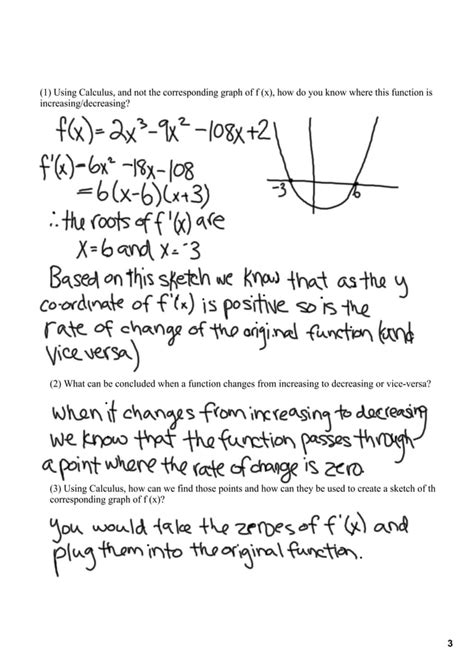 (1) Using Calculus, and not the corresponding graph of f (x), how do you know where this function is
increasing/decreasing?
f(x)=2x³-9x²-108x+2
f'(x)=6x²-18x-108
=6(x-6)(x+3)
∴the roots of f'(x) are
x=6 and x=-3
-3
6
Based on this sketch we know that as the y
co-ordinate of f'(x) is positive so is the
rate of change of the original function (and
vice versa)
(2) What can be concluded when a function changes from increasing to decreasing or vice-versa?
when it changes from increasing to decreasing
we know that the function passes through
a point where the rate of change is zero.
(3) Using Calculus, how can we find those points and how can they be used to create a sketch of th
corresponding graph of f (x)?
You would take the zeroes of f'(x) and
plug them into the original function.
3